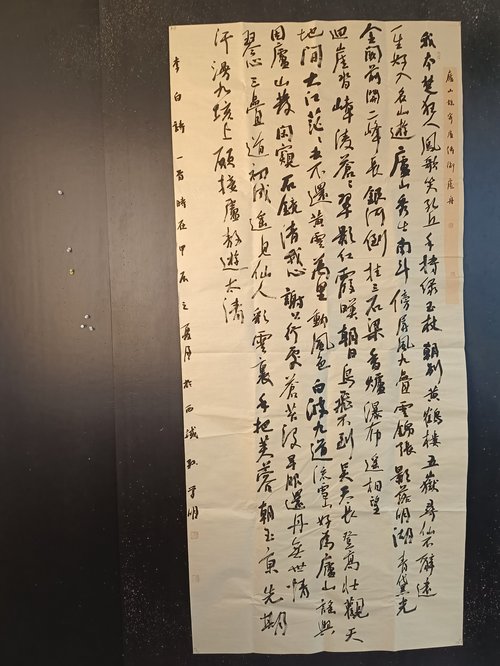 廬山謠寄盧侍御虛舟
我本楚狂人鳳歌笑孔丘手持綠玉杖朝別黃鶴樓五嶽尋仙不辭遠
一生好入名山遊廬山秀出南斗傍屏風九疊雲錦張影落明湖青黛光
金闕前開二峰長銀河倒挂三石梁香爐瀑布遙相望
迴崖沓嶂凌蒼〻翠影紅霞映朝日鳥飛不到吳天長登高壯觀天
地間大江茫〻去不還黃雲萬里動風色白波九道流雪山好為廬山謠興
因廬山發閑窺石鏡清我心謝公行處蒼苔沒早服還丹無世情
琴心三疊道初成遙見仙人彩雲裏手把芙蓉朝玉京先期
汗漫九垓上願接盧敖遊太清
李白詩一首時在甲辰之夏月於西